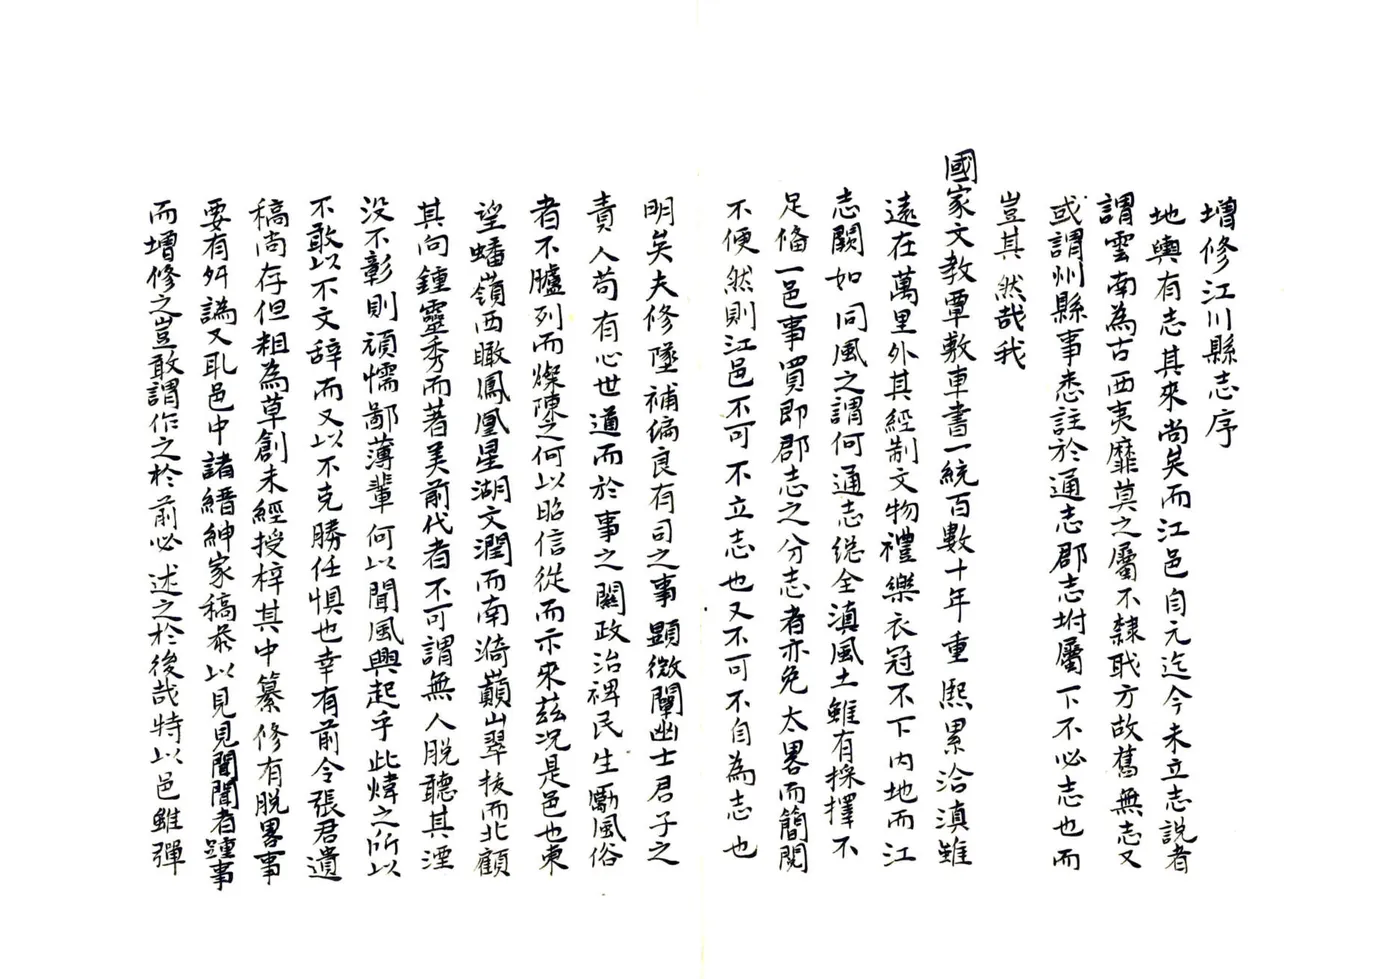 增修江川縣志序
地輿有志其來尚矣而江邑自元迄今未立志説者
謂雲南為古西夷靡莫之屬不隸職方故舊無志又
或謂州縣事悉註於通志郡志坿屬下不必志也而
豈其然哉我
國家文教覃敷車書一統百數十年重熙累洽滇雖
遠在萬里外其經制文物禮樂衣冠不下内地而江
志闕如同風之謂何通志總全滇風土雖有採擇不
足俻一邑事實即郡志之分志者亦免太畧而簡閲
不便然則江邑不可不立志也又不可不自為志也
明矣夫修墜補偏良有司之事顯微闡幽士君子之
責人苟有心世道而於事之關政治裨民生勵風俗
者不臚列而燦陳之何以昭信從而示來兹况是邑也東
望蟠嶺西瞰鳳凰星湖文瀾而南漪巔山翠梭而北顧
其向鍾靈秀而著美前代者不可謂無人脱聽其湮
没不彰則頑懦鄙薄輩何以聞風興起乎此煒之所以
不敢以不文辞而又以不克勝任惧也幸有前令張君遺
稿尚存但粗為草創未經授梓其中纂修有脱畧事
要有舛譌又耴邑中諸縉紳家稿叅以見見聞聞者踵事
而增修之豈敢謂作之於前必述之於後哉特以邑雖彈